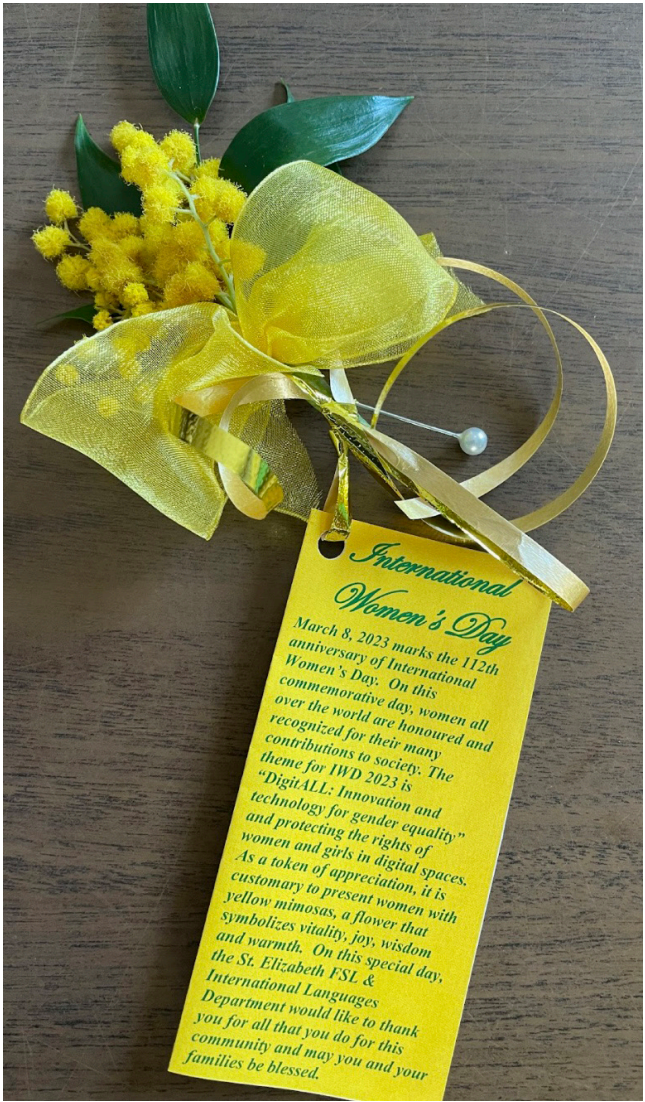 International
Women's Day
March 8, 2023 marks the 112th
anniversary of International
Women's Day. On this
commemorative day, women all
over the world are honoured and
recognized for their many
contributions to society. The
theme for IWD 2023 is
"DigitALL: Innovation and
technology for gender equality"
and protecting the rights of
women and girls in digital spaces.
As a token of appreciation, it is
customary to present women with
yellow mimosas, a flower that
symbolizes vitality, joy, wisdom
and warmth. On this special day,
the St. Elizabeth FSL &
International Languages
Department would like to thank
you for all that you do for this
community and may you and your
families be blessed.